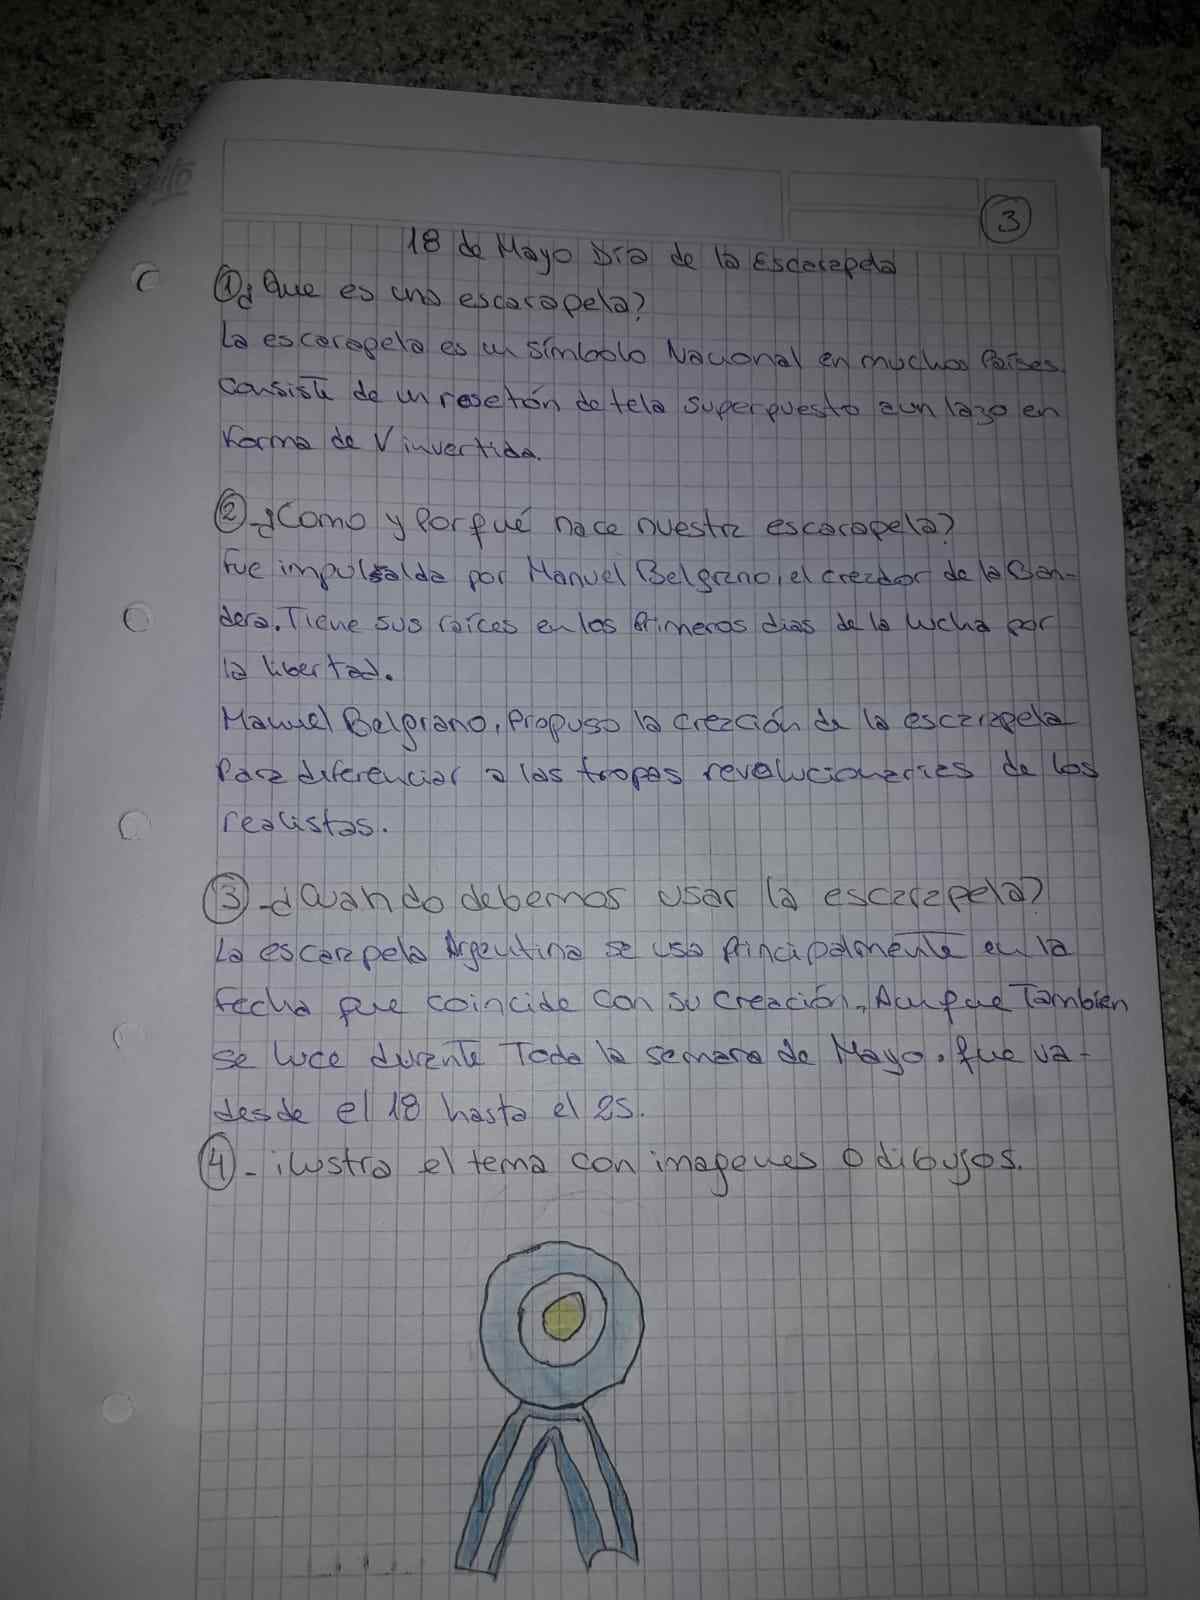 3
18 de Mayo Día de la Escarapela
1 ¿Que es una escarapela?
La escarapela es un símbolo Nacional en muchos Países.
consiste de un rosetón de tela superpuesto a un lazo en
Forma de V invertida.
2 - ¿Como y Porqué nace nuestra escarapela?
Fue impulsalda por Manuel Belgrano, el creador de la Ban-
dera. Tiene sus raíces en los Primeros dias de la lucha por
la libertad.
Manuel Belgrano, Propuso la creación de la escarapela
Para diferenciar a las tropas revolucionaries de los
realistas.
3 - ¿Cuando debemos usar la escarapela?
La escarapela Argentina se usa Principalmente en la
Fecha que coincide con su creación, Aunque Tambien
se luce durente Toda la semana de Mayo. que va-
desde el 18 hasta el 25.
4 - ilustra el tema con imagenes o dibujos.